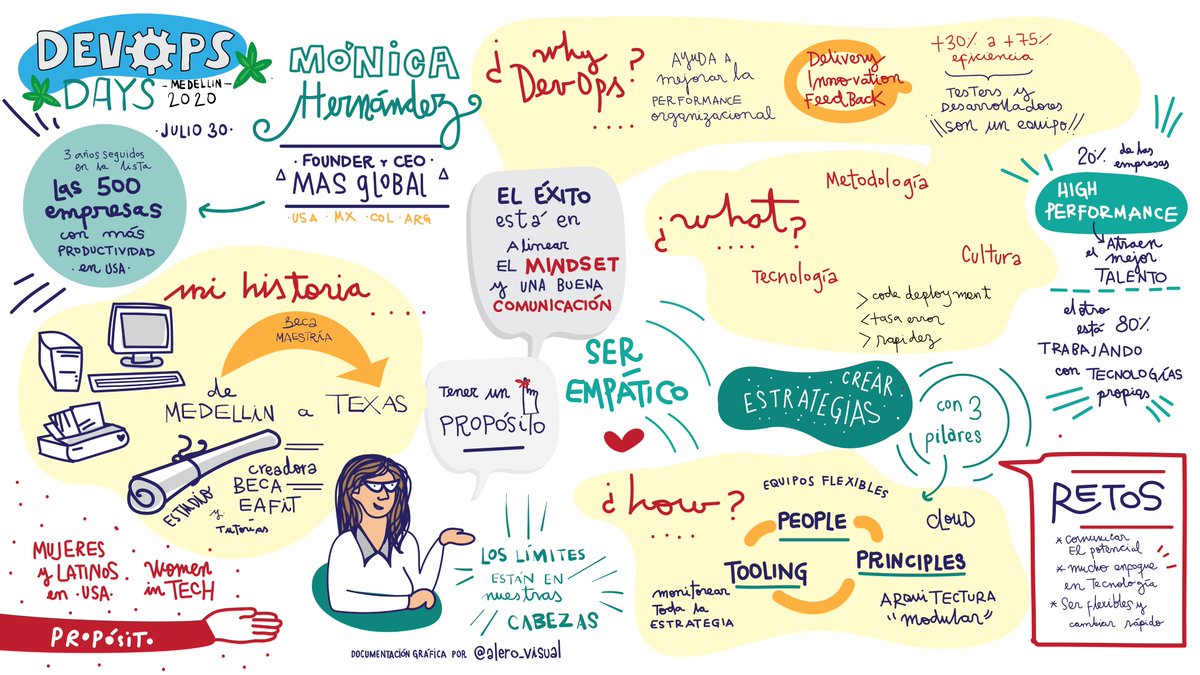 DEVOPS
DAYS - MEDELLIN -
2020
· JULIO 30 ·
MÓNICA
Hernández
· FOUNDER Y CEO ·
MAS GLOBAL
· USA · MX · COL · ARG
3 años seguidos
en la lista
Las 500
empresas
con más
PRODUCTIVIDAD
· en USA ·
mi historia
BECA
MAESTRÍA
de
MEDELLIN a TEXAS
ESTUDIO
y
TUTORÍAS
creadora
BECA
EAFIT
MUJERES
y LATINOS
en · USA ·
Women
in TECH
PROPÓSITO
EL ÉXITO
está en
Alinear
EL MINDSET
y UNA BUENA
COMUNICACIÓN
Tener un
PROPÓSITO
LOS LÍMITES
ESTÁN EN
nuestras
CABEZAS
DOCUMENTACIÓN GRÁFICA POR @alero_visual
¿why
DevOps?
AYUDA A
mejorar la
PERFORMANCE
organizacional
Delivery
Innovation
FeedBack
+30% a +75%
eficiencia
TESTERS y
Desarrolladores
\\son un equipo//
SER
EMPÁTICO
¿what?
Metodología
Tecnología
Cultura
> code deployment
< tasa error
> rapidez
20% de las
empresas
HIGH
PERFORMANCE
Atraen
el mejor
TALENTO
el otro
está 80%
TRABAJANDO
con TECNOLOGÍAS
propias
CREAR
ESTRATEGIAS
con 3
pilares
¿how?
EQUIPOS FLEXIBLES
PEOPLE
CLOUD
TOOLING
PRINCIPLES
monitorear
Toda la
ESTRATEGIA
ARQUITECTURA
"modular"
RETOS
* comunicar
EL potencial
* mucho enfoque
en Tecnología
* Ser flexibles y
cambiar rápido